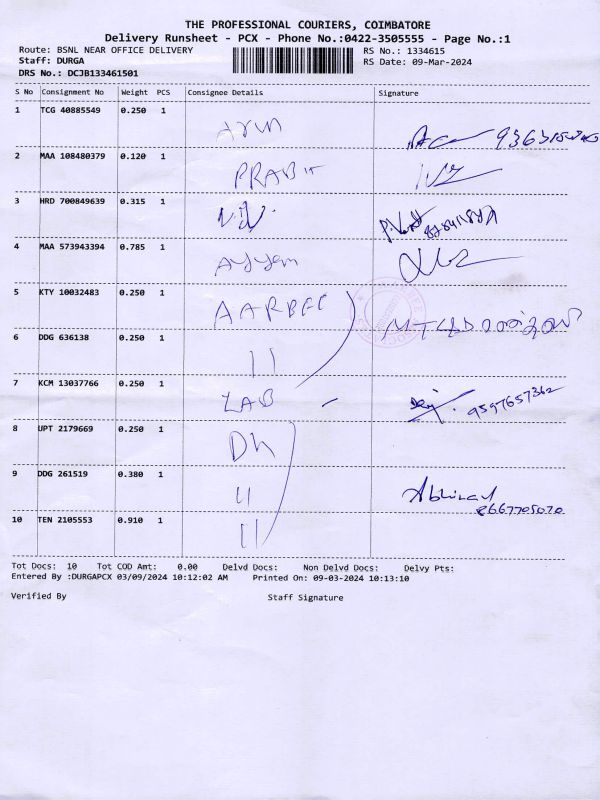 THE PROFESSIONAL COURIERS, COIMBATORE
Delivery Runsheet - PCX - Phone No.:0422-3505555 - Page No.:1
Route: BSNL NEAR OFFICE DELIVERY
RS No.: 1334615
Staff: DURGA
RS Date: 09-Mar-2024
DRS No.: DCJB133461501
S No Consignment No Weight PCS Consignee Details Signature
1 TCG 40885549 0.250 1 Arun
2 MAA 108480379 0.120 1
3 HRD 700849639 0.315 1
4 MAA 573943394 0.785 1
5 KTY 10032483 0.250 1
6 DDG 636138 0.250 1 11
7 KCM 13037766 0.250 1 LAB - 9597657362
8 UPT 2179669 0.250 1
9 DDG 261519 0.380 1 11 Abhinav
8667705020
10 TEN 2105553 0.910 1 11
Tot Docs: 10 Tot COD Amt: 0.00 Delvd Docs: Non Delvd Docs: Delvy Pts:
Entered By :DURGAPCX 03/09/2024 10:12:02 AM Printed On: 09-03-2024 10:13:10
Verified By Staff Signature